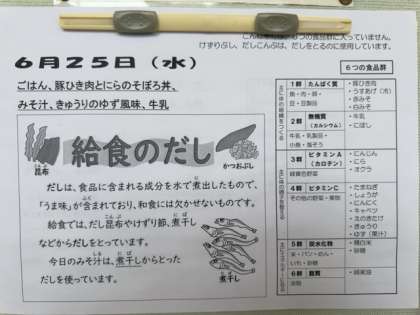 ６つの食品群に入っていません。
けずりぶし、だしこんぶは、だしをとるのに使用しています。
６月２５日（水）
ごはん、豚ひき肉とにらのそぼろ丼、
みそ汁、きゅうりのゆず風味、牛乳
給食のだし
昆布
かつおぶし
だしは、食品に含まれる成分を水で煮出したもので、
「うま味」が含まれており、和食には欠かせないものです。
給食では、だし昆布やけずり節、煮干し
などからだしをとっています。
今日のみそ汁は、煮干しからとった
だしを使っています。
煮干し
６つの食品群
１群 たんぱく質
魚・肉・卵・
豆・豆製品
・豚ひき肉
・うすあげ（市）
・赤みそ
・白みそ
２群 無機質
（カルシウム）
牛乳・乳製品・
小魚・海そう
・牛乳
・にぼし
３群 ビタミンＡ
（カロテン）
緑黄色野菜
・にんじん
・にら
・オクラ
４群 ビタミンＣ
その他の野菜・果物
・たまねぎ
・しょうが
・にんにく
・キャベツ
・えのきたけ
・きゅうり
・ゆず（果汁）
５群 炭水化物
米・パン・めん・
いも・砂糖
・精白米
・砂糖
６群 脂質
油脂
・綿実油